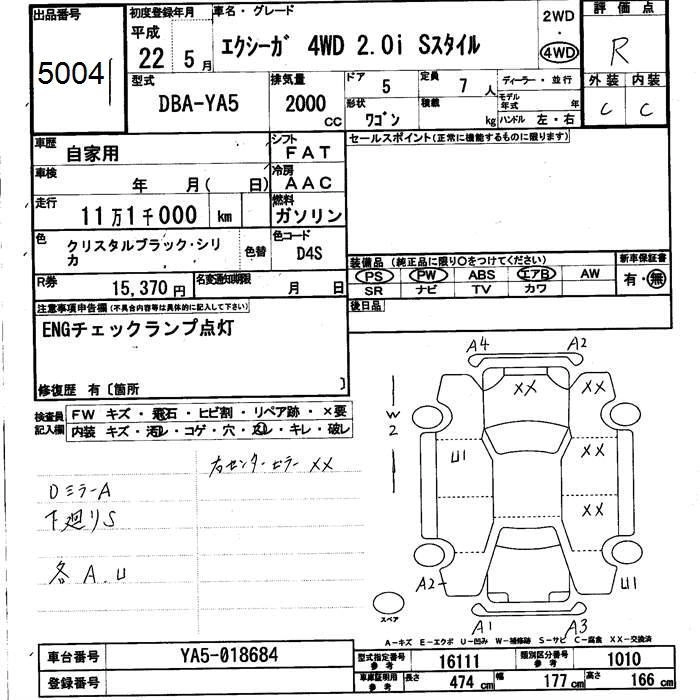 出品番号
5004
初度登録年月
平成
22 5月
車名・グレード
エクシーガ 4WD 2.0i Sスタイル
2WD
・
4WD
評価点
R
外装 内装
C C
型式
DBA-YA5
排気量
2000 cc
ドア 5
定員 7 人
形状 ワゴン
積載 kg
ディーラー・並行
モデル年式 年
ハンドル 左・右
車歴 自家用
シフト FAT
車検 年 月( 日)
冷房 AAC
走行 11万1千000 km
燃料 ガソリン
色 クリスタルブラック・シリカ
色替
色コード D4S
R券 15,370円
名変通知期限 月 日
セールスポイント(正常に機能するものに限ります)
装備品 (純正品に限り○をつけてください)
PS PW ABS エアB AW
SR ナビ TV カワ
新車保証書
有・無
後日品
注意事項申告欄(不具合内容等は具体的に記入して下さい)
ENGチェックランプ点灯
修復歴 有〔箇所 〕
検査員記入欄
FW キズ・飛石・ヒビ割・リペア跡・×要
内装 キズ・汚レ・コゲ・穴・スレ・キレ・破レ
右センターピラー XX
Dミラー A
下廻り S
各 A.U
A4 A2
XX XX
W2
U1 XX
XX
A2 U1
A1 A3
スペア
A-キズ E-エクボ U-凹み W-補修跡 S-サビ C-腐食 XX-交換済
車台番号 YA5-018684
登録番号
型式指定番号 参考 16111
類別区分番号 参考 1010
車庫証明用 参考 長さ 474 cm 幅 177 cm 高さ 166 cm